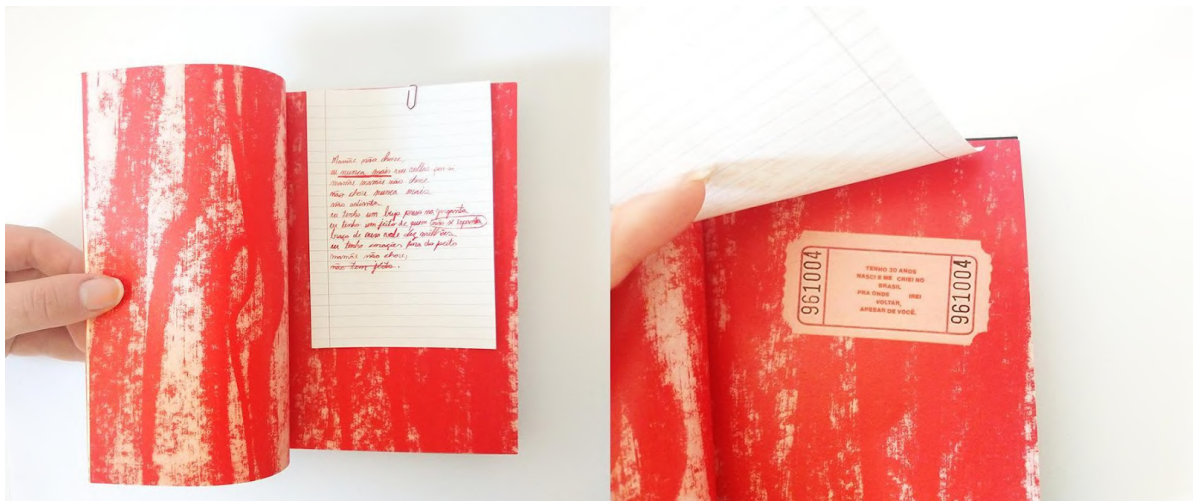 Mamãe não chore
se nunca mais eu voltar por aí
mamãe mamãe não chore
não chore nunca mais
não adianta
eu tenho um beijo preso na garganta
eu tenho um jeito de quem não se espanta
braço de ouro vale dez milhões
eu tenho corações fora do peito
mamãe não chore,
não tem jeito.
961004
TENHO 30 ANOS
NASCI E ME CRIEI NO
BRASIL
PRA ONDE IREI
VOLTAR,
APESAR DE VOCÊ.
961004